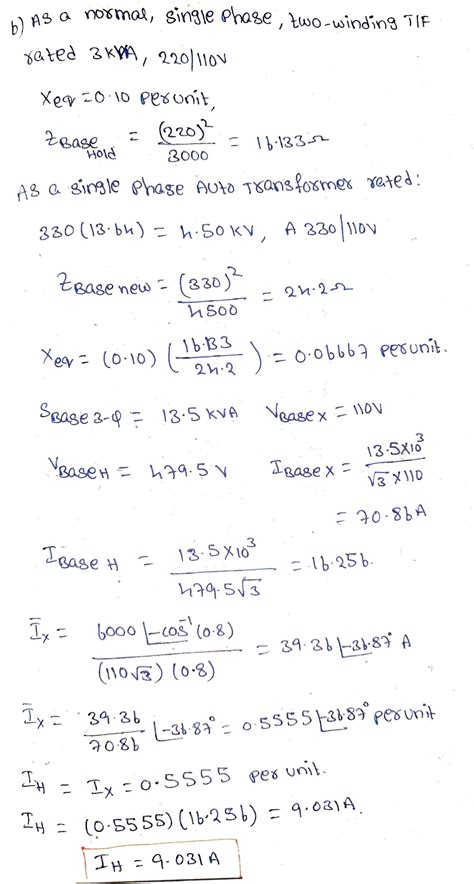 b) As a normal, single phase, two-winding T/F
rated 3KVA, 220/110V
Xeq = 0.10 per unit,
ZBase Hold = (220)² / 3000 = 16.133Ω
As a single phase Auto Transformer rated:
330(13.64) = 4.50KV, A 330/110V
ZBase new = (330)² / 4500 = 24.2Ω
Xeq = (0.10) (16.133 / 24.2) = 0.06667 per unit.
SBase 3-φ = 13.5 KVA VBase X = 110V
VBase H = 479.5 V IBase X = 13.5×10³ / √3 × 110
= 70.86A
IBase H = 13.5×10³ / 479.5√3 = 16.256.
I̅x = 6000 ∠-cos⁻¹(0.8) / (110√3)(0.8) = 39.36 ∠-36.87° A
I̅x = 39.36 / 70.86 ∠-36.87° = 0.5555 ∠-36.87° per unit
IH = Ix = 0.5555 per unit.
IH = (0.5555)(16.256) = 9.031A.
IH = 9.031A